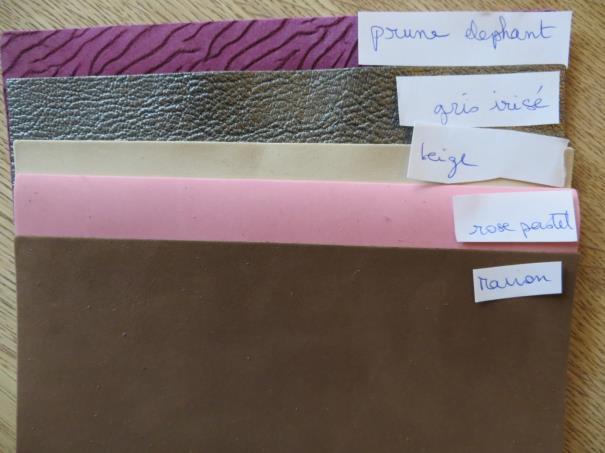 prune elephant
gris irisé
beige
rose pastel
marron